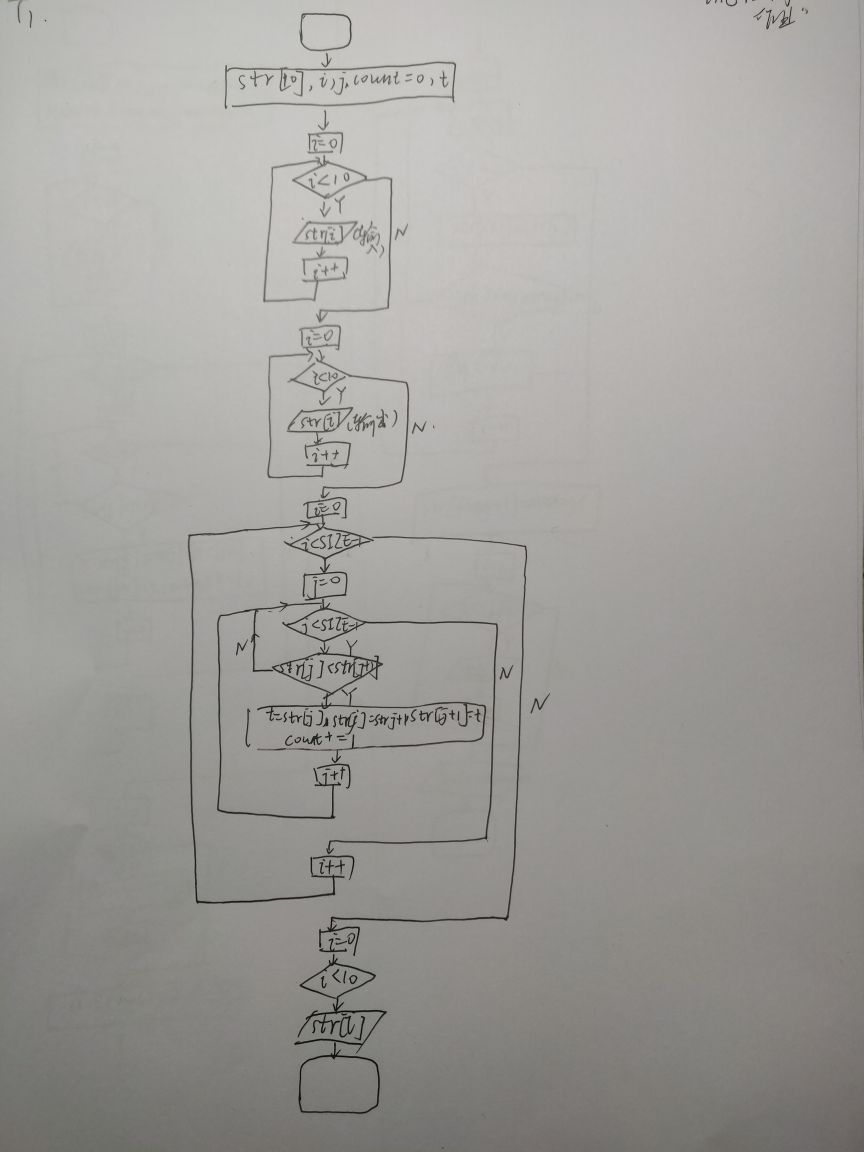 T1.
str[10], i, j, count=0, t
i=0
i<10
Y
str[i] (输入)
N
i++
i=0
i<10
Y
str[i] (输出)
N.
i++
i=0
i<SIZE-1
j=0
j<SIZE-1
N
Y
str[j]>str[j+1]
N
N
Y
t=str[j], str[j]=strj+1, str[j+1]=t
count+=1
j++
i++
i=0
i<10
str[i]